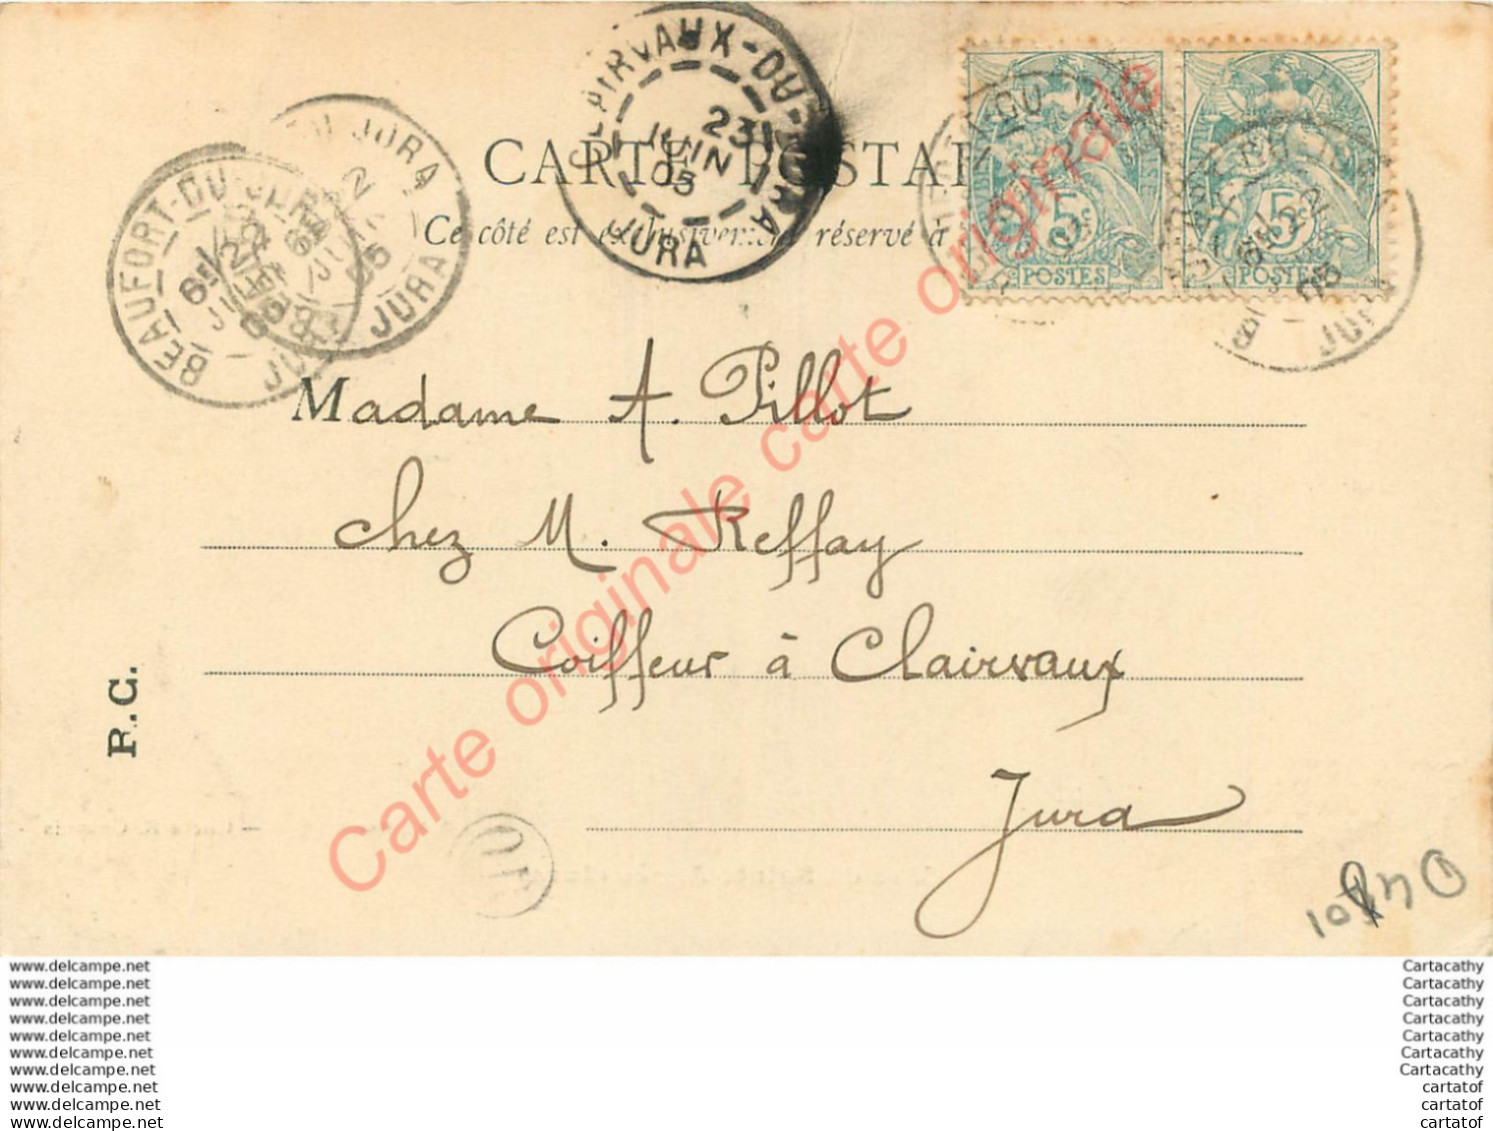 CLAIRVAUX-DU-JURA
23
JUIN
05
JURA
BEAUFORT-DU-JURA
6E 22
JURA
JURA
05
JURA
CARTE POSTALE
Ce côté est exclusivement réservé à
5c
POSTES
5c
POSTES
22
05
JURA
Madame A. Pillot
chez M. Reffay
Coiffeur à Clairvaux
Jura
F.C.
OR
Carte originale carte originale
www.delcampe.net
www.delcampe.net
www.delcampe.net
www.delcampe.net
www.delcampe.net
www.delcampe.net
www.delcampe.net
www.delcampe.net
www.delcampe.net
www.delcampe.net
Cartacathy
Cartacathy
Cartacathy
Cartacathy
Cartacathy
Cartacathy
Cartacathy
cartatof
cartatof
cartatof